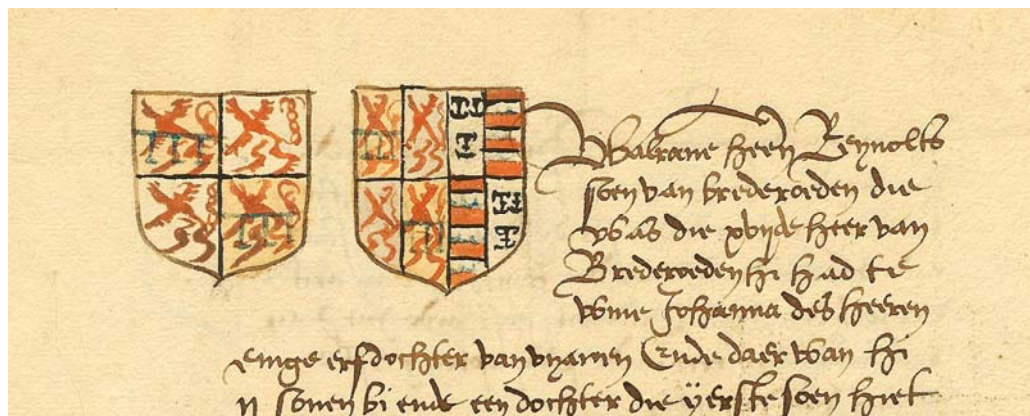 Walrave heren Reynolts
soen van brederoeden die
was die xvijde heer van
Brederoeden hi had te
wiue Johanna des heeren
enige erfdochter van vyanen Ende daer wan hi
ij sonen bi ende een dochter die yerste soen hiet